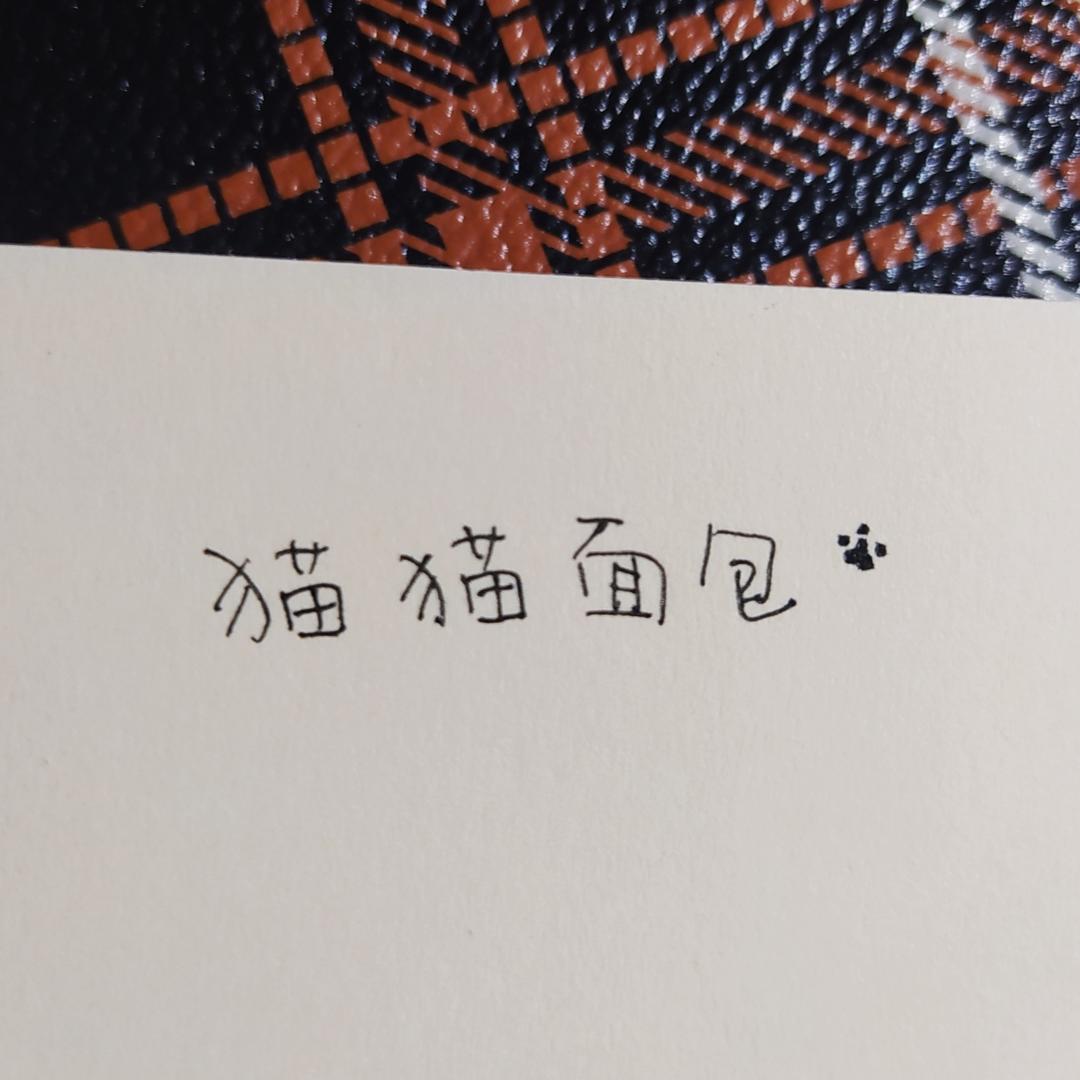 猫猫面包